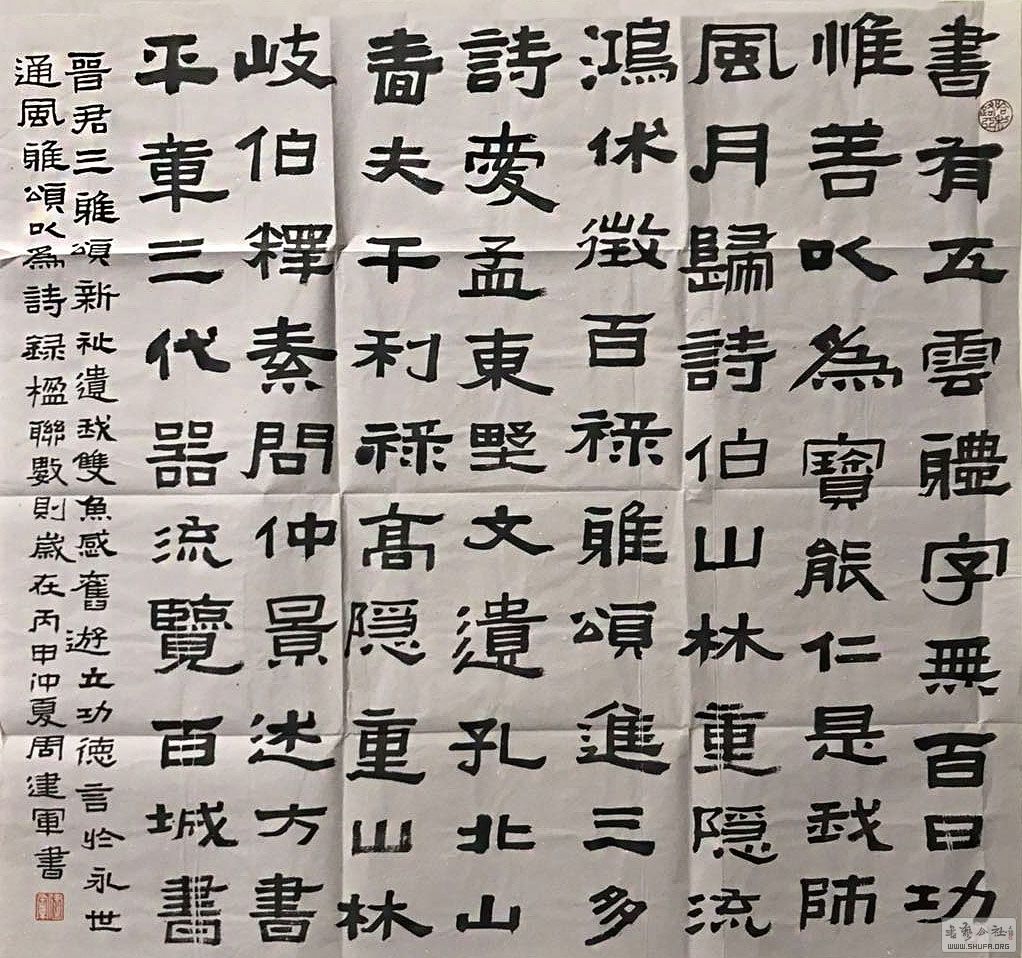 書有五雲體字無百日功
惟善以為寶能仁是我師
風月歸詩伯山林重隱流
鴻休徵百祿雅頌進三多
詩愛孟東野文遺孔北山
嗇夫干利祿高隱重山林
岐伯釋素問仲景述方書
平章三代器流覽百城書
晉君三雅頌新祉遺我雙魚感舊遊立功德言於永世
通風雅頌以為詩録楹聯數則歲在丙申仲夏周建軍書
WWW.SHUFA.ORG